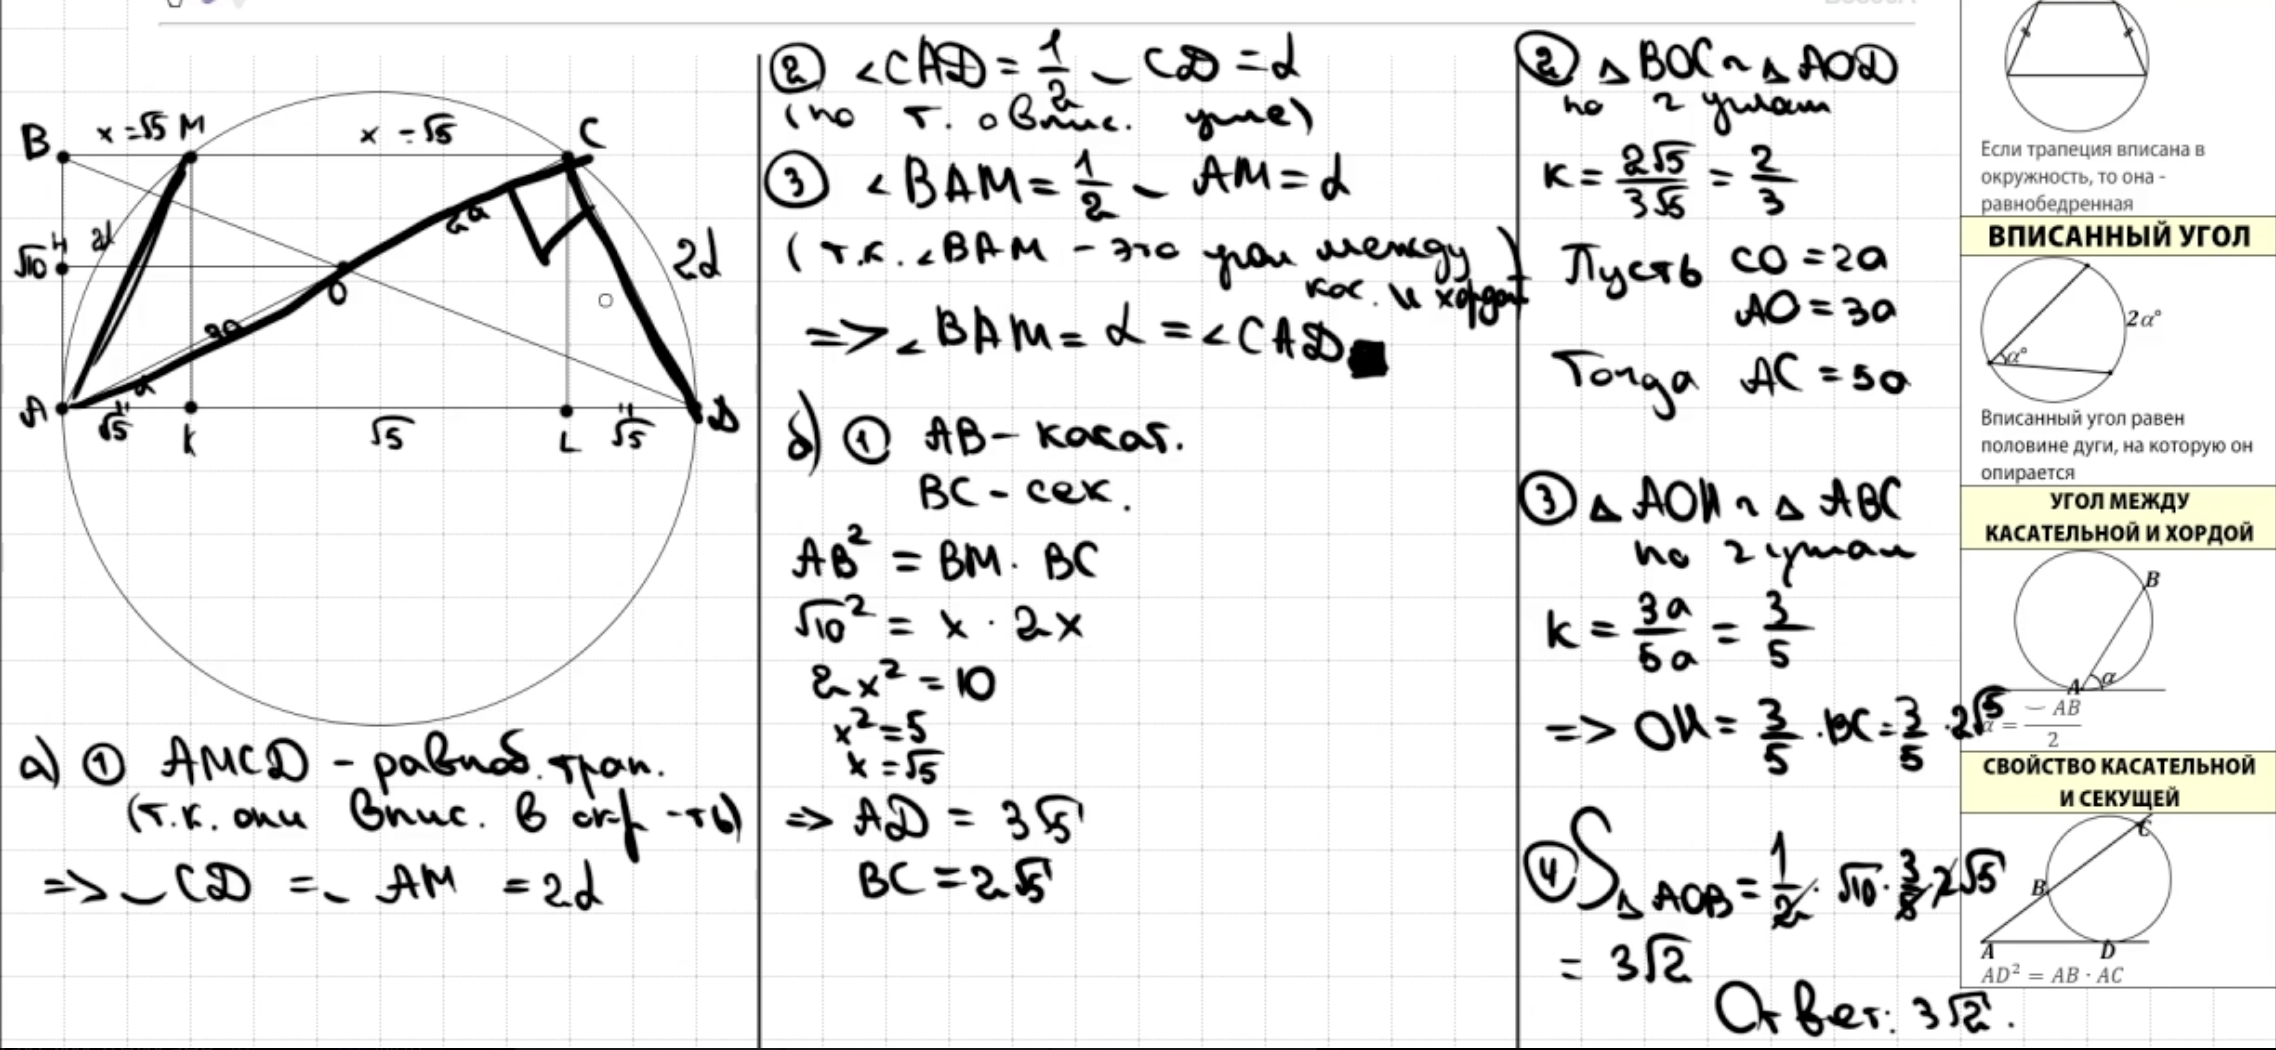 B
x = √5
M
x = √5
C
2α
H
√10
2a
2α
O
3a
α
A
√5
K
√5
L
√5
D
а) ① AMCD – равноб. трап.
(т.к. они впис. в окр-ть)
=> ⌣ CD = ⌣ AM = 2α
② ∠CAD = 1/2 ⌣ CD = α
(по т. о впис. угле)
③ ∠BAM = 1/2 ⌣ AM = α
(т.к. ∠BAM – это угол между
кас. и хордой)
=> ∠BAM = α = ∠CAD ■
б) ① AB – касат.
BC – сек.
AB² = BM · BC
√10² = x · 2x
2x² = 10
x² = 5
x = √5
=> AD = 3√5
BC = 2√5
② △ BOC ~ △ AOD
по 2 углам
k = 2√5/3√5 = 2/3
Пусть CO = 2a
AO = 3a
Тогда AC = 5a
③ △ AOH ~ △ ABC
по 2 углам
k = 3a/5a = 3/5
=> OH = 3/5 · BC = 3/5 · 2√5
④ S△AOB = 1/2 · √10 · 3/5 · 2√5
= 3√2
Ответ: 3√2.
Если трапеция вписана в
окружность, то она -
равнобедренная
ВПИСАННЫЙ УГОЛ
2α°
α°
Вписанный угол равен
половине дуги, на которую он
опирается
УГОЛ МЕЖДУ
КАСАТЕЛЬНОЙ И ХОРДОЙ
B
A
α
α = ⌣ AB / 2
СВОЙСТВО КАСАТЕЛЬНОЙ
И СЕКУЩЕЙ
C
B
A
D
AD² = AB · AC